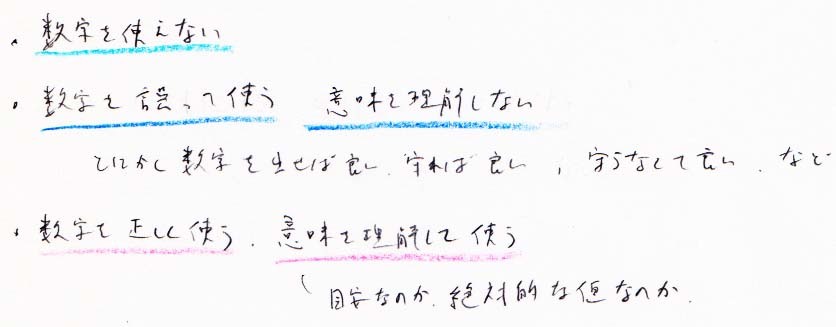 ・数字を使えない
・数字を誤って使う 意味を理解しない
とにかく数字を出せば良い、守れば良い、守らなくて良い、など
・数字を正しく使う、意味を理解して使う
目安なのか、絶対的な値なのか、